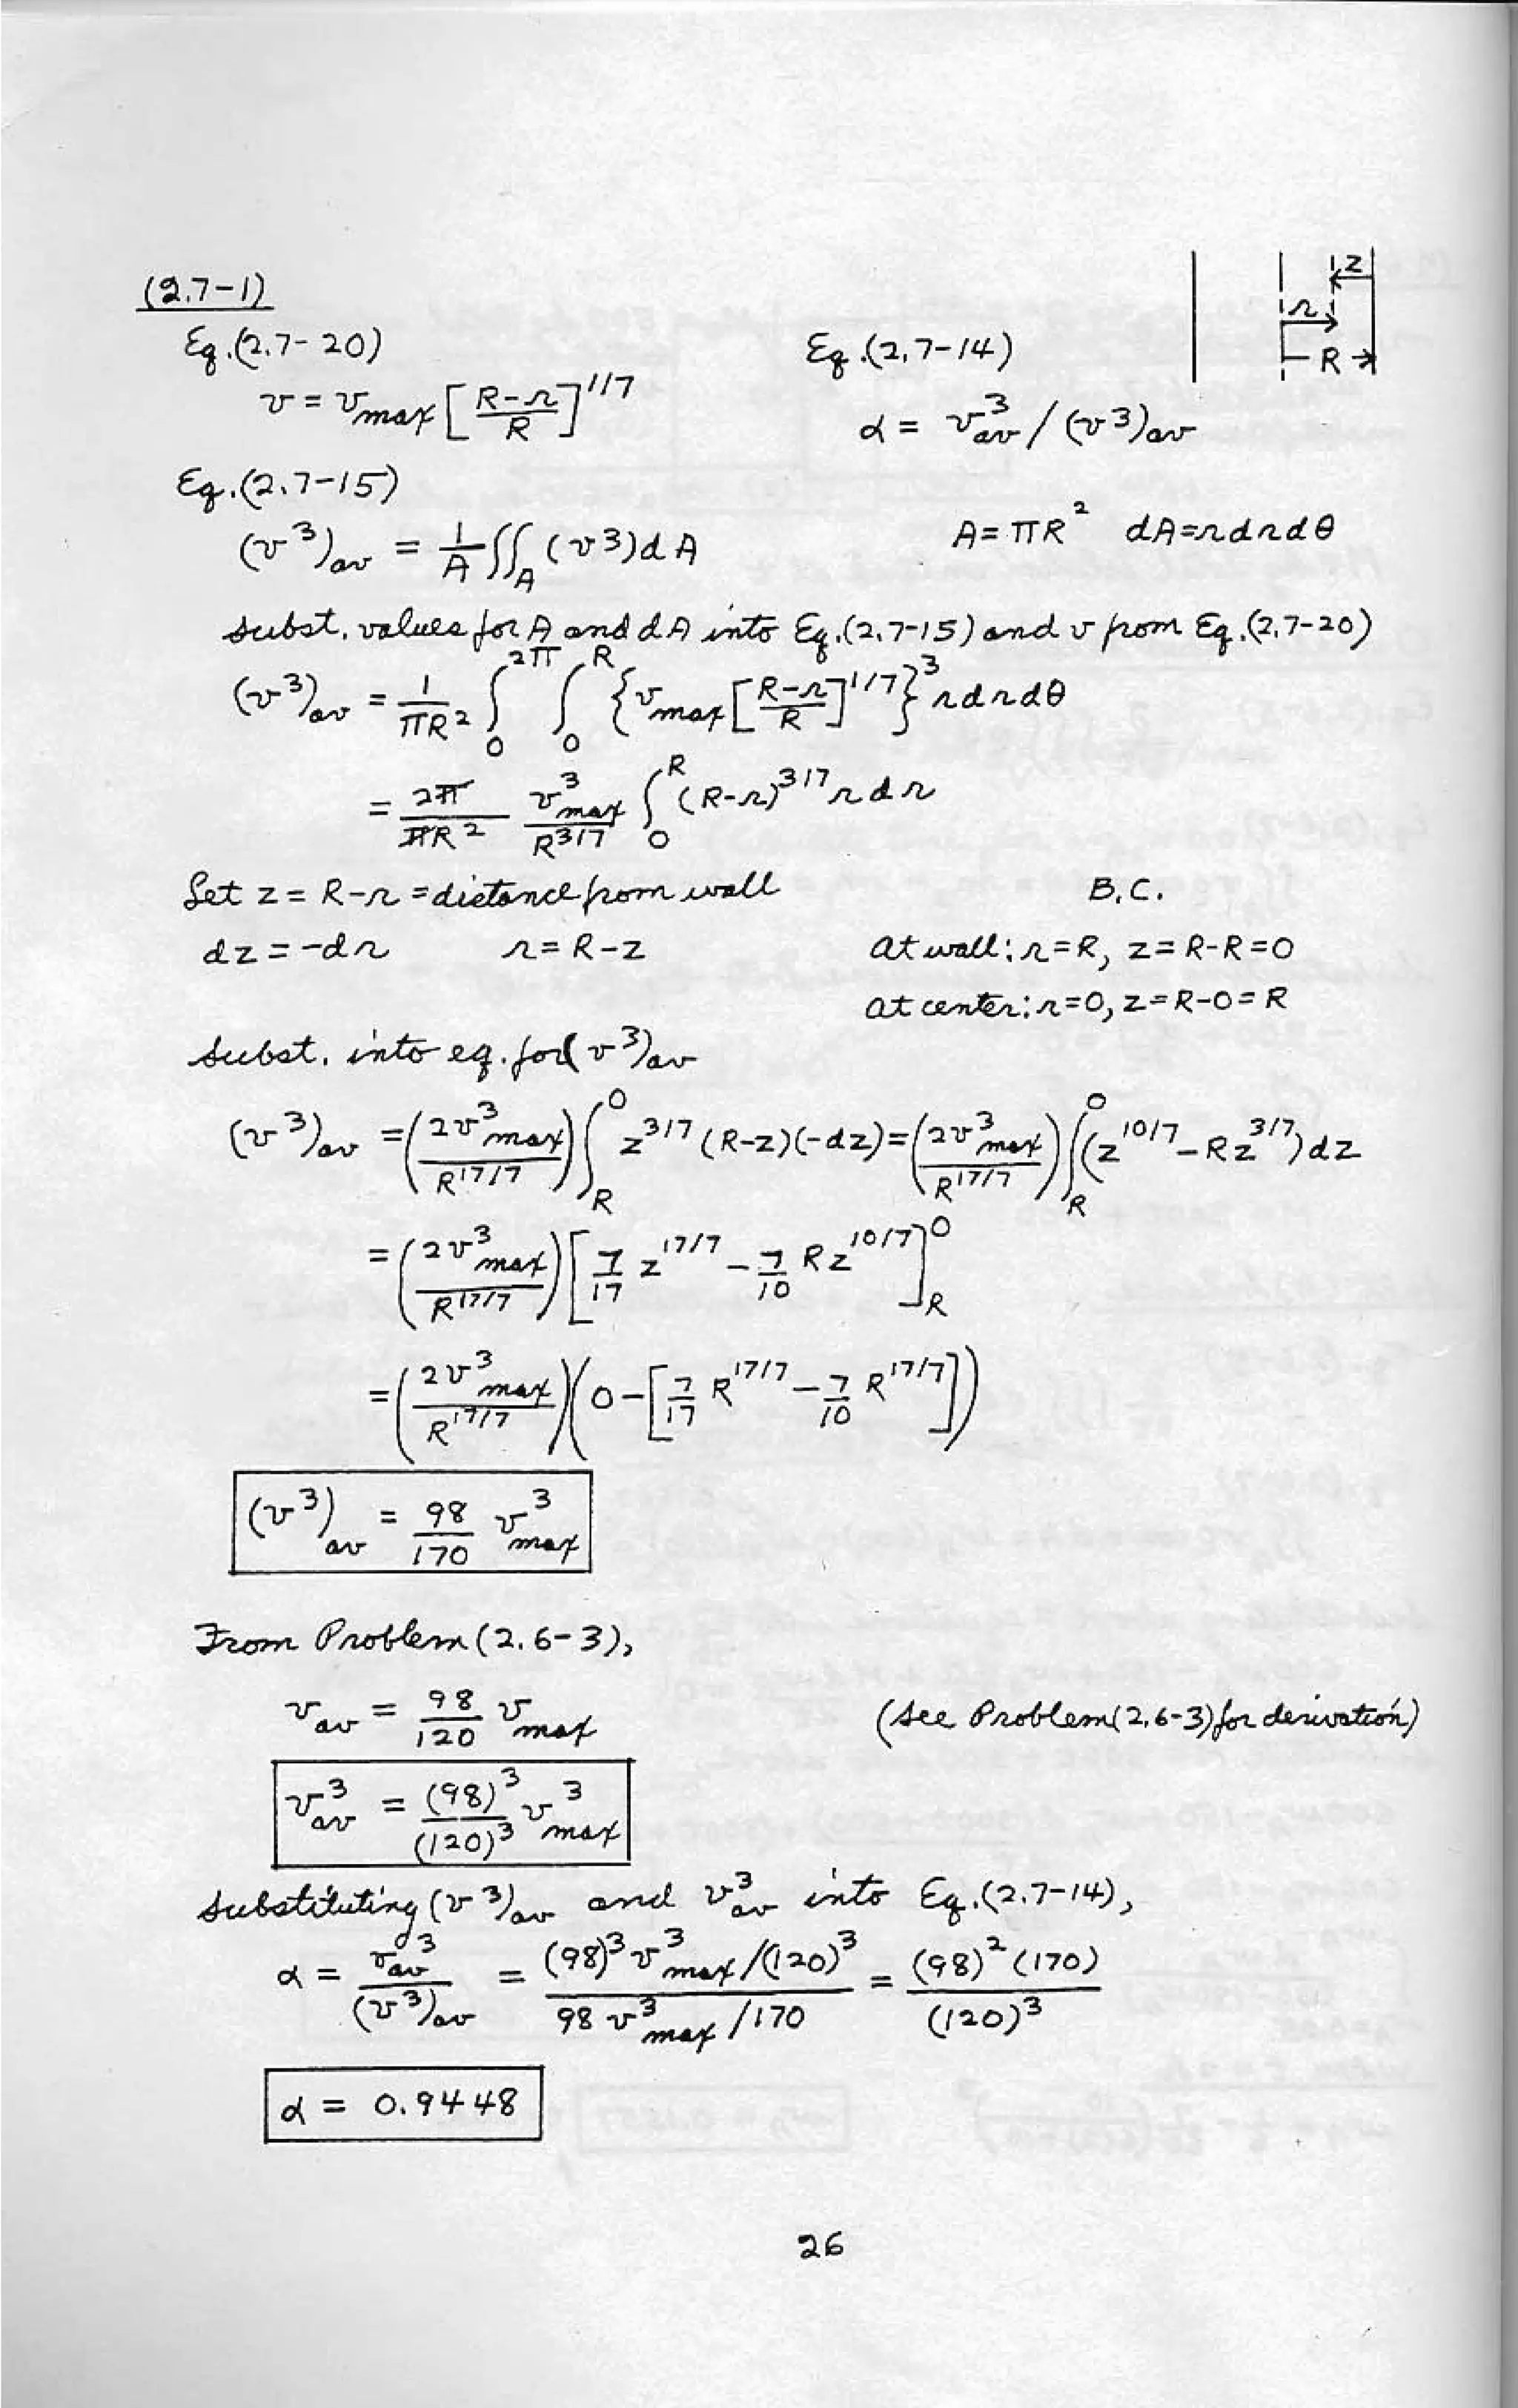 (2.7-1)
z
r
R
Eq.(2.7-20)
Eq.(2.7-14)
v = v_max [(R-r)/R]^1/7
α = v_av^3 / (v^3)_av
Eq.(2.7-15)
(v^3)_av = 1/A ∫∫_A (v^3) dA
A = πR^2 dA = r dr dθ
subst. values for A and dA into Eq.(2.7-15) and v from Eq.(2.7-20)
(v^3)_av = 1/(πR^2) ∫_0^2π ∫_0^R {v_max [(R-r)/R]^1/7}^3 r dr dθ
= 2π/(πR^2) v_max^3/R^3/7 ∫_0^R (R-r)^3/7 r dr
Set z = R-r = distance from wall
B.C.
dz = -dr r = R-z
at wall: r=R, z=R-R=0
at center: r=0, z=R-0=R
subst. into eq. for (v^3)_av
(v^3)_av = (2v^3_max/R^17/7) ∫_R^0 z^3/7 (R-z)(-dz) = (2v^3_max/R^17/7) ∫_R^0 (z^10/7 - Rz^3/7) dz
= (2v^3_max/R^17/7) [7/17 z^17/7 - 7/10 R z^10/7]_R^0
= (2v^3_max/R^17/7) (0 - [7/17 R^17/7 - 7/10 R^17/7])
(v^3)_av = 98/170 v^3_max
From Problem (2.6-3),
v_av = 98/120 v_max
(see Problem (2.6-3) for derivation)
v_av^3 = (98)^3/(120)^3 v^3_max
substituting (v^3)_av and v_av^3 into Eq.(2.7-14),
α = v_av^3/(v^3)_av = ((98)^3 v^3_max/(120)^3)/(98 v^3_max/170) = (98)^2 (170)/(120)^3
α = 0.9448
26